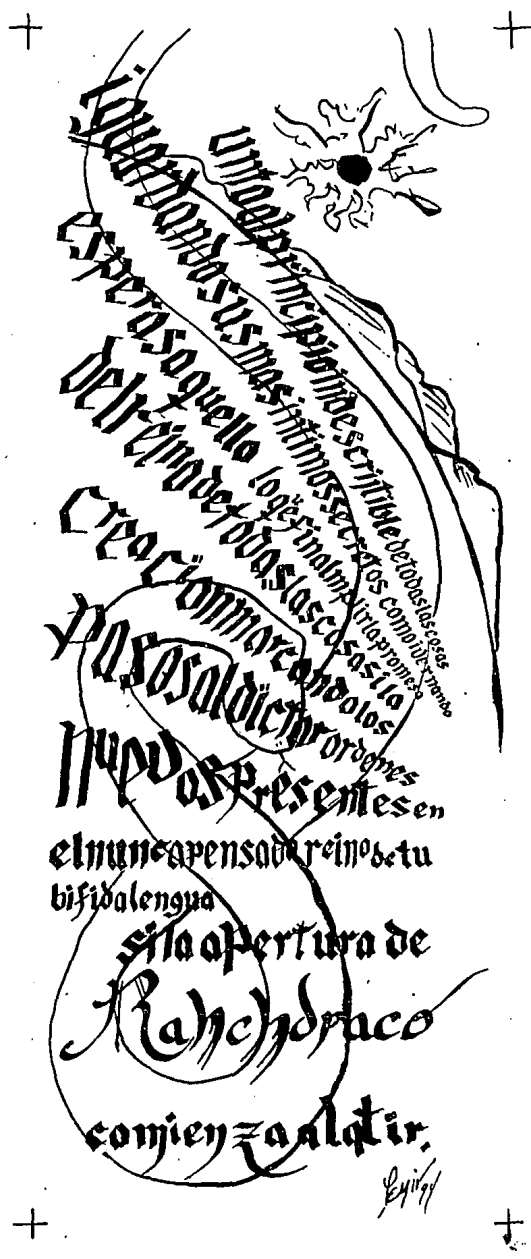 principio indescritible de todas las cosas
guardando sus mas intimos secretos como
esperas aquello final la promesa
del reino de todas las cosas si la
creacion marcando los
pasos al dictar ordenes
nuevos presentes en
el nunca pensado reino de tu
bifida lengua
si la apertura de
Ranchdraco
comienza al